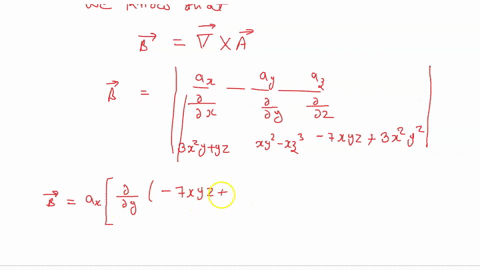 we know that
B⃗ = ∇⃗ X A⃗
B⃗ = | a_x a_y a_z
∂/∂x ∂/∂y ∂/∂z
3x²y+yz xy²-xz³ -7xyz+3x²y² |
B⃗ = a_x [ ∂/∂y ( -7xyz+